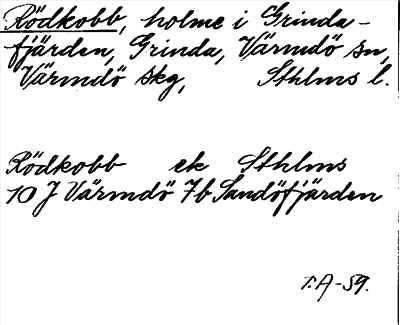 Rödkobb, holme i Grinda-
fjärden, Grinda, Värmdö sn,
Värmdö skg, Sthlms l.
Rödkobb ek Sthlms
10 J Värmdö 7b Sandöfjärden
T.A-59.